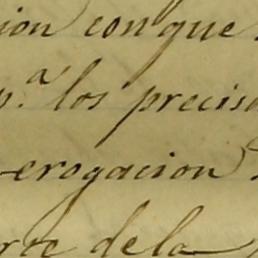 ion con que
p.ª los precis
erogacion
de la